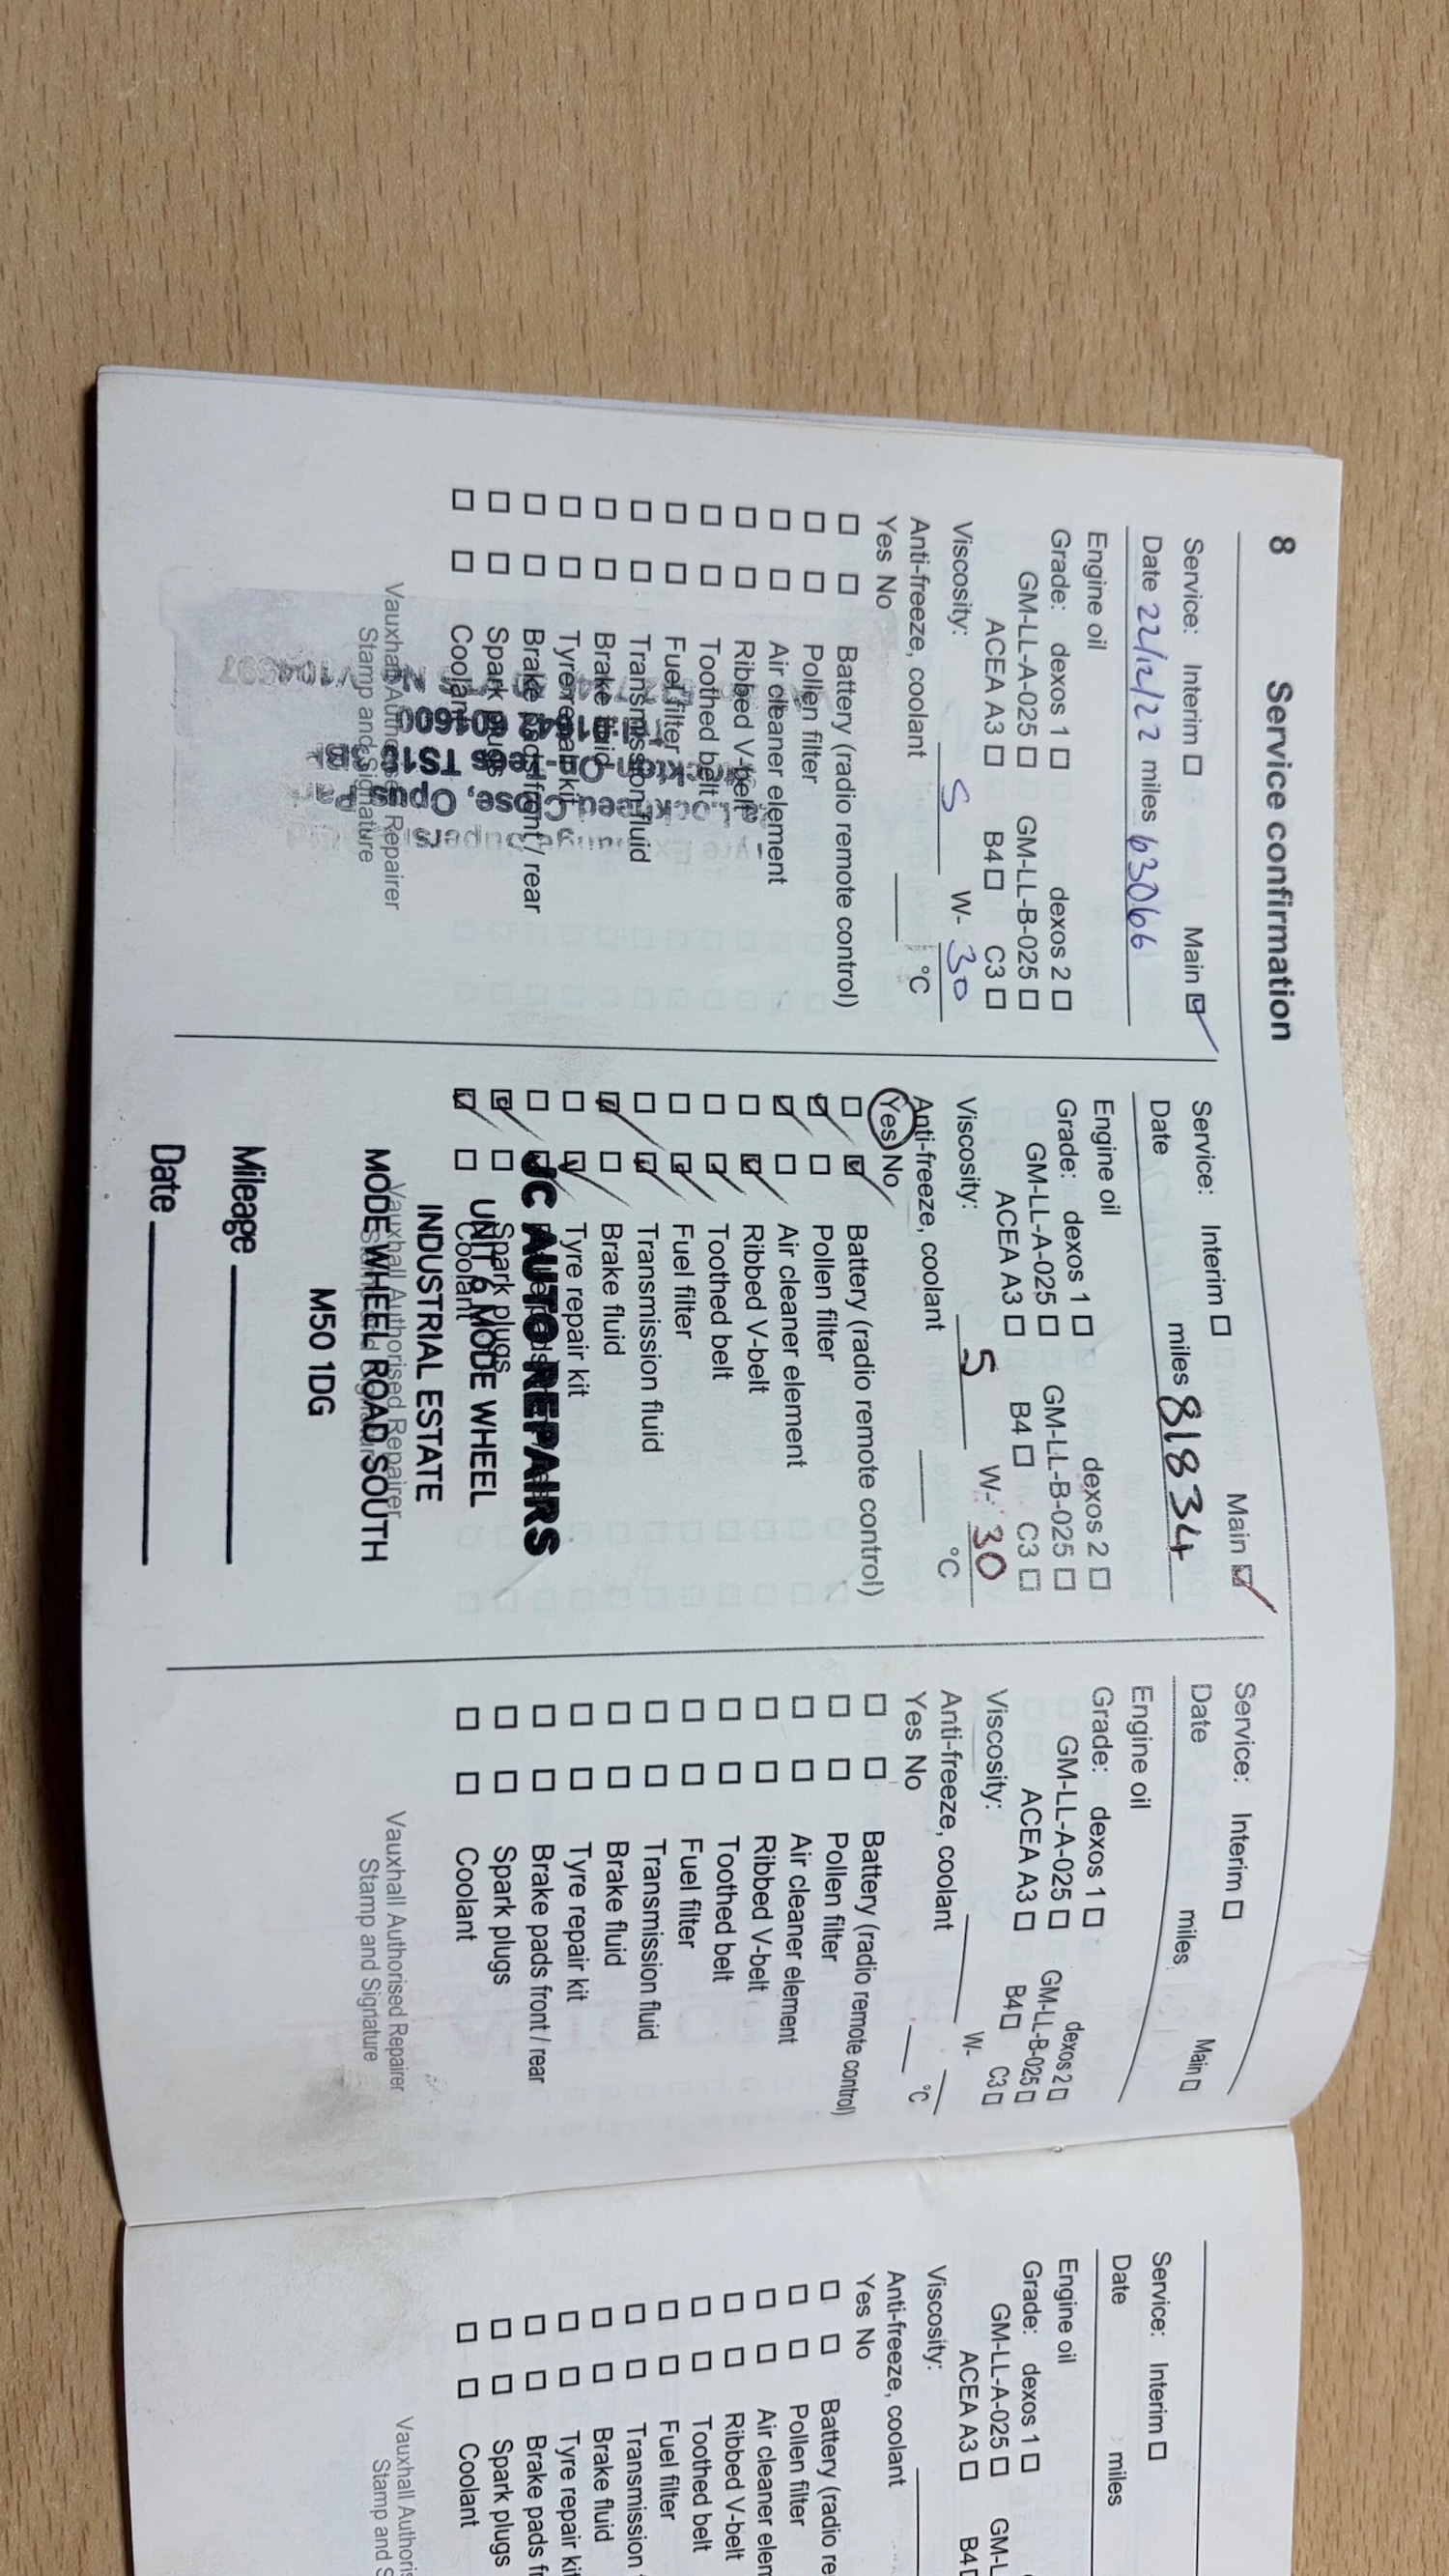 8 Service confirmation
Service: Interim □ Main ☑
Date 22/12/22 miles 63066
Engine oil
Grade: dexos 1 □ dexos 2 □
GM-LL-A-025 □ GM-LL-B-025 □
ACEA A3 □ B4 □ C3 □
Viscosity: 5 W- 30
Anti-freeze, coolant °C
Yes No
□ □ Battery (radio remote control)
□ □ Pollen filter
□ □ Air cleaner element
□ □ Ribbed V-belt
□ □ Toothed belt
□ □ Fuel filter
□ □ Transmission fluid
□ □ Brake fluid
□ □ Tyre repair kit
□ □ Brake pads front / rear
□ □ Spark plugs
□ □ Coolant
Vauxhall Authorised Repairer
Stamp and Signature
Service: Interim □ Main ☑
Date miles 81834
Engine oil
Grade: dexos 1 □ dexos 2 □
GM-LL-A-025 □ GM-LL-B-025 □
ACEA A3 □ B4 □ C3 □
Viscosity: 5 W- 30
Anti-freeze, coolant °C
Yes No
□ ☑ Battery (radio remote control)
☑ □ Pollen filter
☑ □ Air cleaner element
□ ☑ Ribbed V-belt
□ ☑ Toothed belt
□ ☑ Fuel filter
□ ☑ Transmission fluid
☑ □ Brake fluid
□ ☑ Tyre repair kit
JC AUTO REPAIRS
☑ □ Spark plugs
UNIT 6 MODE WHEEL
☑ □ Coolant
INDUSTRIAL ESTATE
Vauxhall Authorised Repairer
MODE WHEEL ROAD SOUTH
M50 1DG
Mileage
Date
Service: Interim □ Main □
Date miles
Engine oil
Grade: dexos 1 □ dexos 2 □
GM-LL-A-025 □ GM-LL-B-025 □
ACEA A3 □ B4 □ C3 □
Viscosity: W-
Anti-freeze, coolant °C
Yes No
□ □ Battery (radio remote control)
□ □ Pollen filter
□ □ Air cleaner element
□ □ Ribbed V-belt
□ □ Toothed belt
□ □ Fuel filter
□ □ Transmission fluid
□ □ Brake fluid
□ □ Tyre repair kit
□ □ Brake pads front / rear
□ □ Spark plugs
□ □ Coolant
Vauxhall Authorised Repairer
Stamp and Signature
Service: Interim □
Date miles
Engine oil
Grade: dexos 1 □
GM-LL-A-025 □ GM-L
ACEA A3 □ B4 □
Viscosity:
Anti-freeze, coolant
Yes No
□ □ Battery (radio re
□ □ Pollen filter
□ □ Air cleaner elem
□ □ Ribbed V-belt
□ □ Toothed belt
□ □ Fuel filter
□ □ Transmission
□ □ Brake fluid
□ □ Tyre repair ki
□ □ Brake pads fr
□ □ Spark plugs
□ □ Coolant
Vauxhall Authoris
Stamp and S